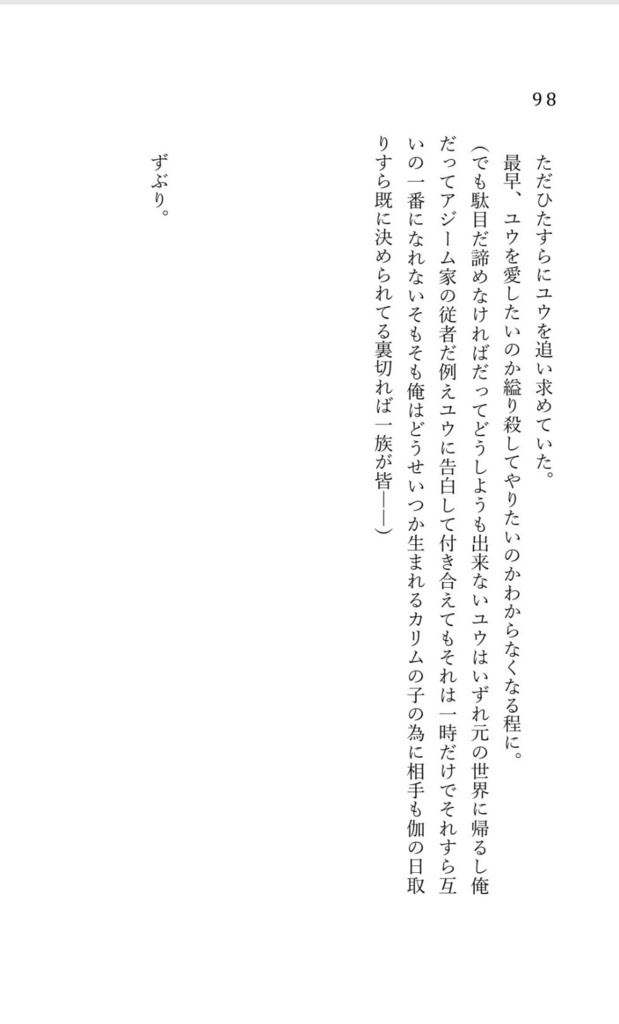 98
ただひたすらにユウを追い求めていた。
最早、ユウを愛したいのか縊り殺してやりたいのかわからなくなる程に。
（でも駄目だ諦めなければだってどうしようも出来ないユウはいずれ元の世界に帰るし俺
だってアジーム家の従者だ例えユウに告白して付き合えてもそれは一時だけでそれすら互
いの一番になれないそもそも俺はどうせいつか生まれるカリムの子の為に相手も伽の日取
りすら既に決められてる裏切れば一族が皆――）
ずぶり。